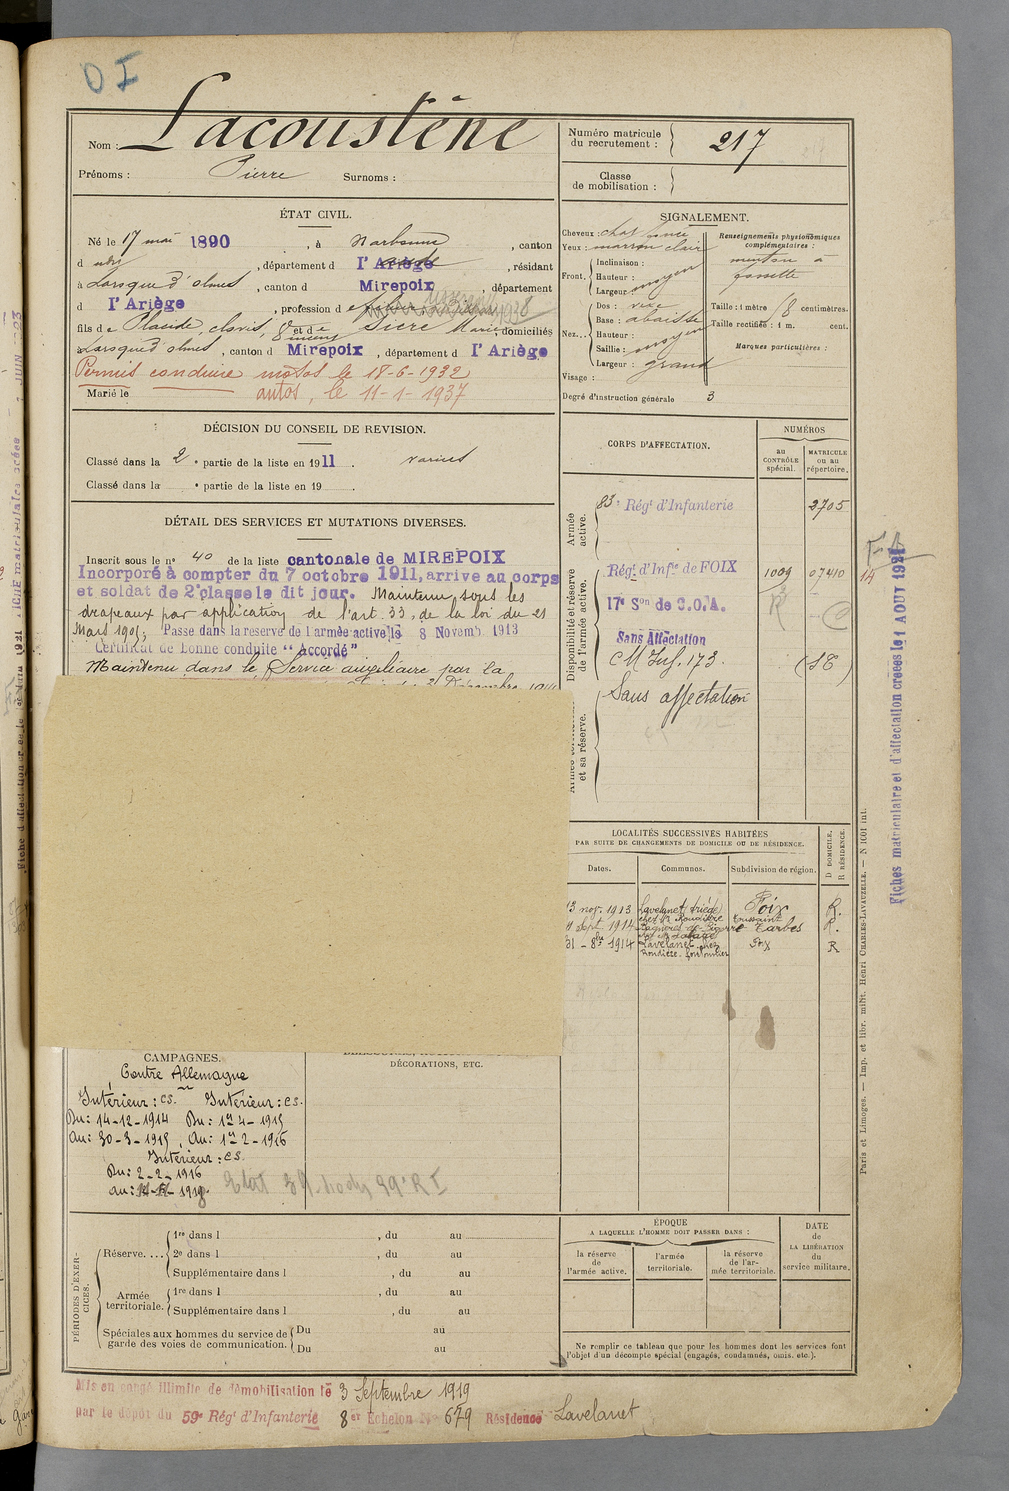 OI
Nom : Lacoustène
Prénoms : Pierre Surnoms :
Numéro matricule du recrutement : 217
Classe de mobilisation :
ÉTAT CIVIL.
Né le 17 mai 1890, à Narbonne, canton
d udit, département d l'Ariège aude, résidant
à Laroque d'olmes, canton d Mirepoix, département
d l'Ariège, profession d
fils de Placide, clovis, et de Sicre Marie, domiciliés
à Laroque d'olmes, canton d Mirepoix, département d l'Ariège
Permis conduire motos le 18-6-1932
Marié le autos, le 11-1-1937
SIGNALEMENT.
Cheveux : chat foncé
Yeux : marron clair
Front. Inclinaison :
Hauteur : moyen
Largeur :
Nez... Dos :
Base : abaissée
Hauteur :
Saillie : moyen
Largeur : grand
Visage :
Renseignements physionomiques complémentaires :
menton à
fossette
Taille : 1 mètre centimètres.
Taille rectifiée : 1 m. cent.
Marques particulières :
Degré d'instruction générale 3
DÉCISION DU CONSEIL DE REVISION.
Classé dans la 2e partie de la liste en 1911.
Classé dans la e partie de la liste en 19 .
DÉTAIL DES SERVICES ET MUTATIONS DIVERSES.
Inscrit sous le n° 40 de la liste cantonale de MIREPOIX
Incorporé à compter du 7 octobre 1911, arrive au corps
et soldat de 2e classe le dit jour. Maintenu sous les
drapeaux par application de l'art. 33, de la loi du 21
Mars 1905; Passe dans la reserve de l'armée active le 8 Novemb. 1913
Certificat de bonne conduite "Accordé"
Maintenu dans le Service auxiliaire par la
CORPS D'AFFECTATION.
NUMÉROS
au CONTRÔLE spécial.
MATRICULE ou au répertoire.
Armée active.
83e Régt d'Infanterie 2705
Disponibilité et réserve de l'armée active.
Régt d'Infie de FOIX 1009 07410
17e Son de C.O.A. R
Sans Affectation
CM Inf. 173.
et sa réserve.
Sans affectation
14
Fiches matriculaire et d'affectation créées le 1 AOUT 1921
LOCALITÉS SUCCESSIVES HABITÉES
PAR SUITE DE CHANGEMENTS DE DOMICILE OU DE RÉSIDENCE.
Dates. Communes. Subdivision de région. D DOMICILE. R RÉSIDENCE.
13 nov. 1913 Lavelanet Foix R.
sept 1914 Bagnères-de-Bigorre Tarbes R.
1914 Lavelanet chez Foix R
Paris et Limoges. — Imp. et libr. milit. Henri CHARLES-LAVAUZELLE. — N 1001 int.
CAMPAGNES.
Contre Allemagne
Intérieur : cs. Intérieur : cs.
Du : 14-12-1914 Du : 1er 4-1915
Au : 30-3-1915, Au : 1er 2-1916
Intérieur : cs.
Du : 2-2-1916
DÉCORATIONS, ETC.
PÉRIODES D'EXERCICES.
Réserve.... 1re dans l , du au
2e dans l , du au
Supplémentaire dans l , du au
Armée territoriale. 1re dans l , du au
Supplémentaire dans l , du au
Spéciales aux hommes du service de garde des voies de communication. Du au
Du au
ÉPOQUE
A LAQUELLE L'HOMME DOIT PASSER DANS :
la réserve de l'armée active.
l'armée territoriale.
la réserve de l'armée territoriale.
DATE de LA LIBÉRATION du service militaire.
Ne remplir ce tableau que pour les hommes dont les services font
l'objet d'un décompte spécial (engagés, condamnés, omis, etc.).
Mis en congé illimité de démobilisation le 3 Septembre 1919
par le dépôt du 59e Régt d'Infanterie 8er Echelon N° 679 Résidence Lavelanet